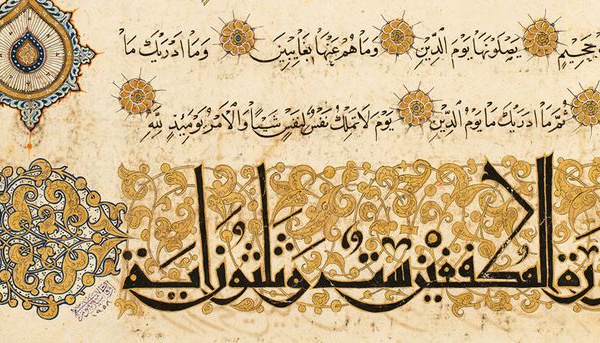 جحيم يصلونها يوم الدين وما هم عنها بغايبين وما ادريك ما
ثم ما ادريك ما يوم الدين يوم لا تملك نفس لنفس شيئا والامر يوميذ لله
رة المطففين ست وثلثون اية